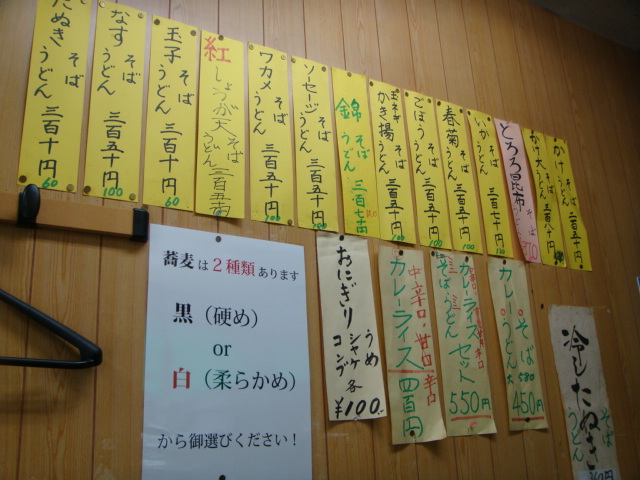 かけ そば うどん 二百五十円
かけ大 そば うどん 三百八十円
とろろ昆布 そば うどん 370
いか そば うどん 三百七十円
春菊 そば うどん 三百五十円 100
ごぼう そば うどん 三百五十円 100
玉ネギ かき揚 そば うどん 三百五十円 100
錦 そば うどん 三百七十
ソーセージ そば うどん 三百五十円 100
ワカメ そば うどん 三百五十円 100
紅しょうが天 そば うどん 三百五十円
玉子 そば うどん 三百十円 60
なす そば うどん 三百五十円 100
たぬき そば うどん 三百十円 60
蕎麦は2種類あります
黒（硬め）
or
白（柔らかめ）
から御選びください！
おにぎり
うめ
シャケ
コンブ
各
¥100.-
カレーライス 四百円
中辛口・甘口 辛口
カレーライスセット
そば うどん
550円
カレー そば うどん
大 580
450円
冷したぬき
そば
うどん